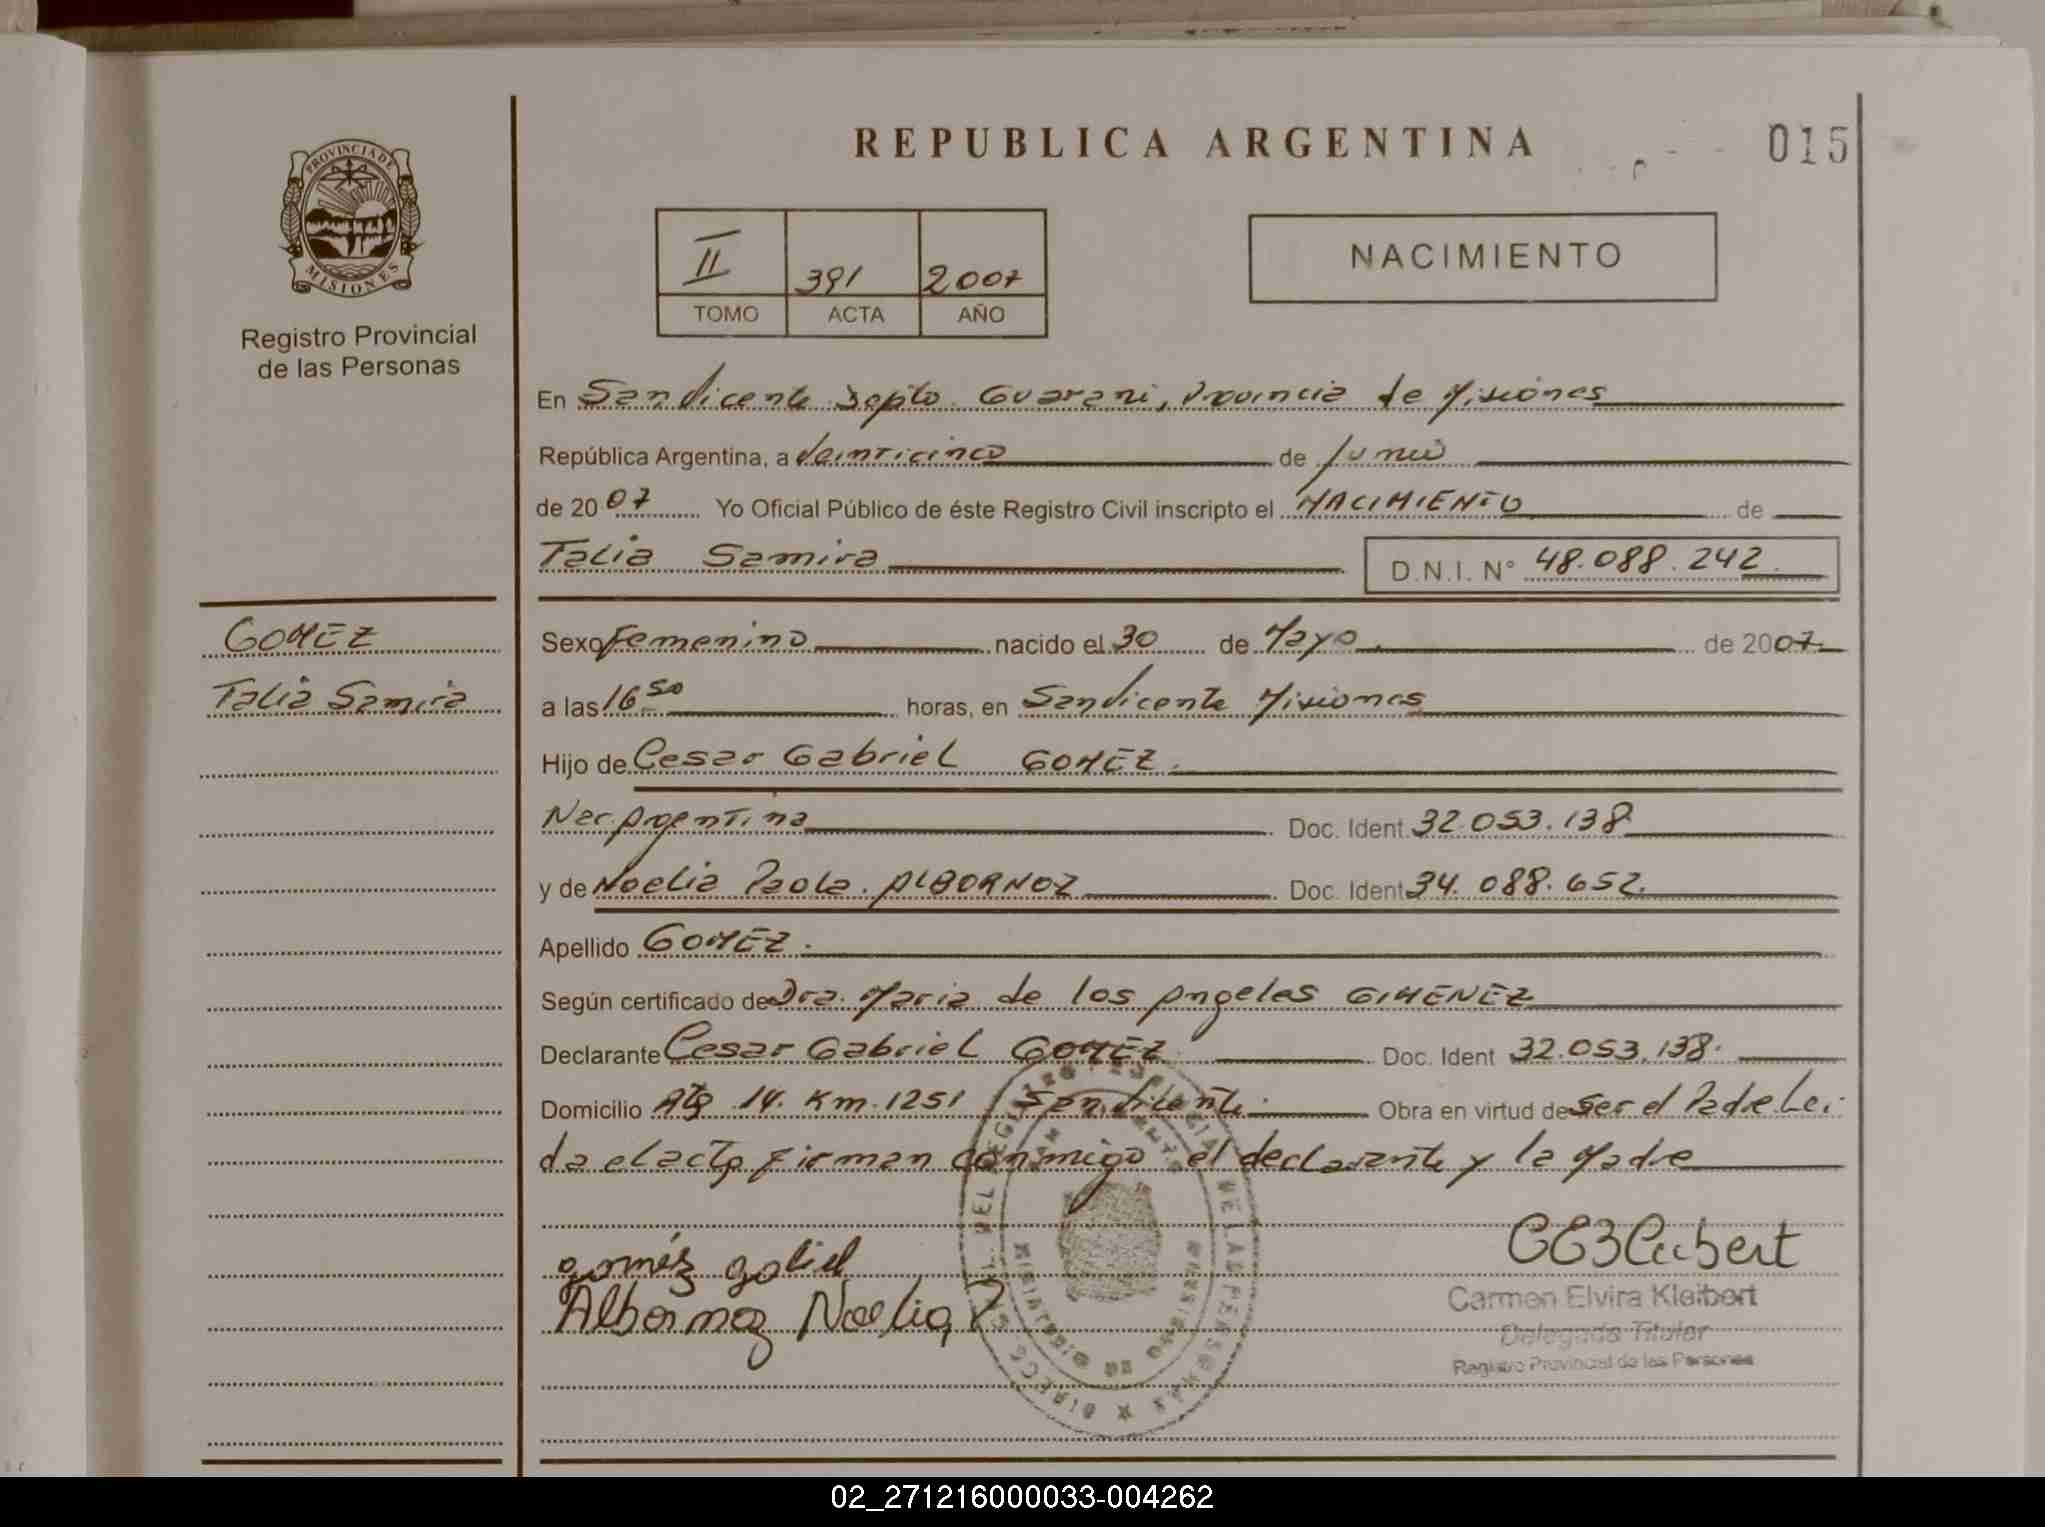 REPUBLICA ARGENTINA
015
PROVINCIA DE
MISIONES
Registro Provincial
de las Personas
II 391 2007
TOMO ACTA AÑO
NACIMIENTO
En San Vicente Depto Guarani, Provincia de Misiones
República Argentina, a Veinticinco de Junio
de 2007 Yo Oficial Público de éste Registro Civil inscripto el NACIMIENTO de
Talia Samira D.N.I. N° 48.088.242.
GOMEZ
Talia Samira
Sexo Femenino nacido el 30 de Mayo de 2007
a las 16 50 horas, en San Vicente Misiones
Hijo de Cesar Gabriel GOMEZ.
Nac. Argentina Doc. Ident. 32.053.138
y de Noelia Paola. ALBORNOZ Doc. Ident 34.088.652.
Apellido GOMEZ.
Según certificado de Dra. Maria de los Angeles GIMENEZ
Declarante Cesar Gabriel GOMEZ Doc. Ident 32.053.138.
Domicilio Rta 14. Km. 1251 San Vicente. Obra en virtud de ser el Padre Lei
da el acta firman conmigo el declarante y la Madre
gomés gabiel
Albornoz Noelia P
Carmen Elvira Kleibert
Delegada Titular
Registro Provincial de las Personas
02_271216000033-004262